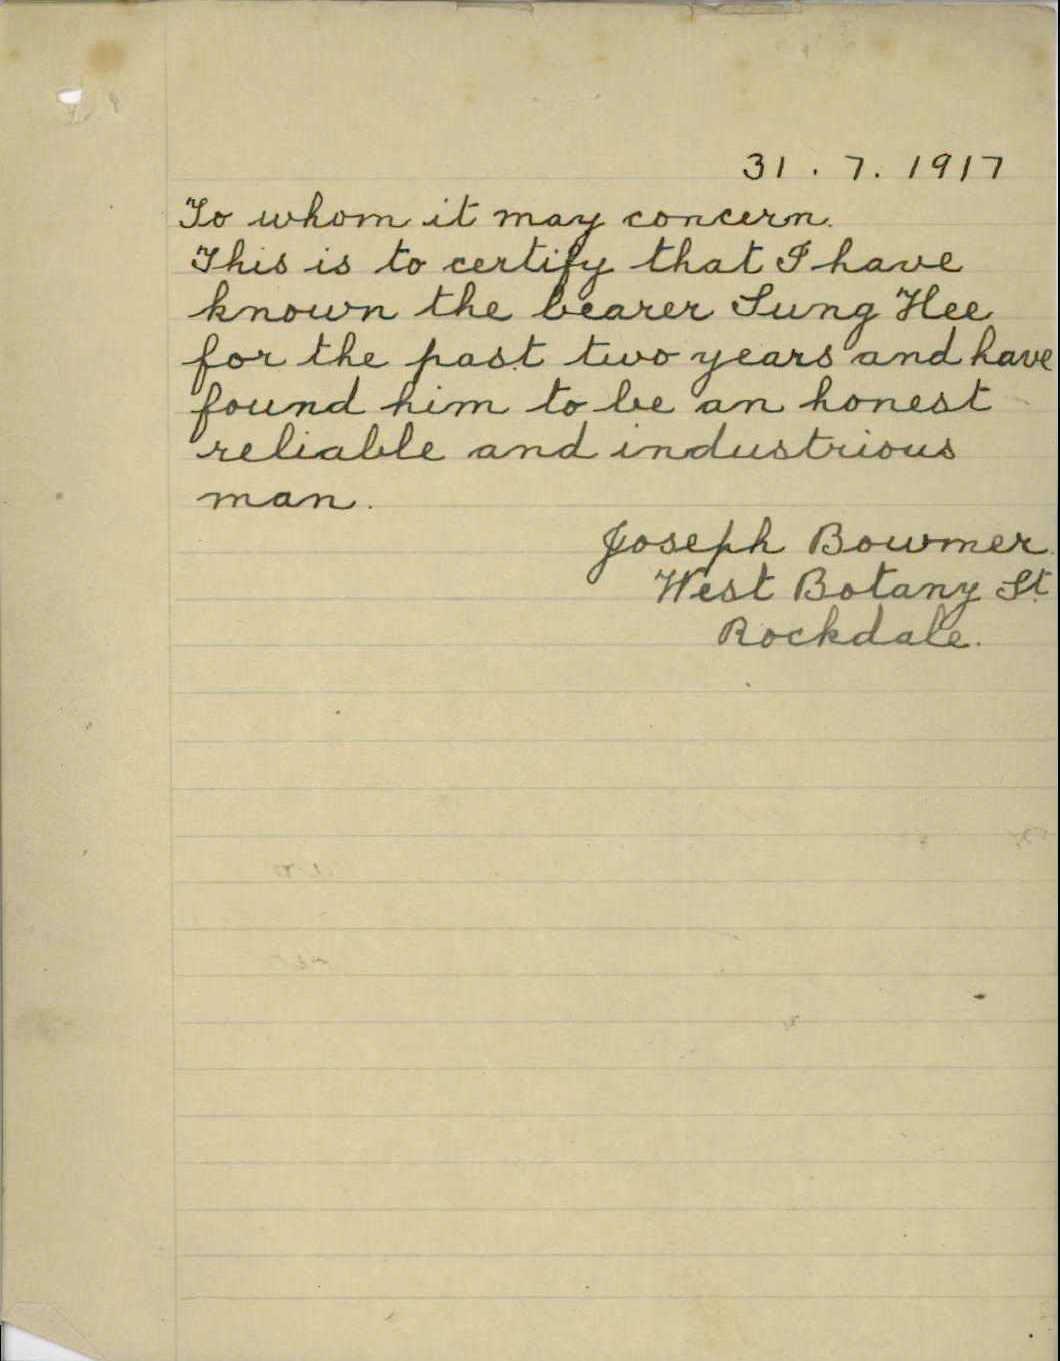 31 . 7. 1917
To whom it may concern.
This is to certify that I have
known the bearer Sung Hee
for the past two years and have
found him to be an honest
reliable and industrious
man.
Joseph Bowmer
West Botany St.
Rockdale.